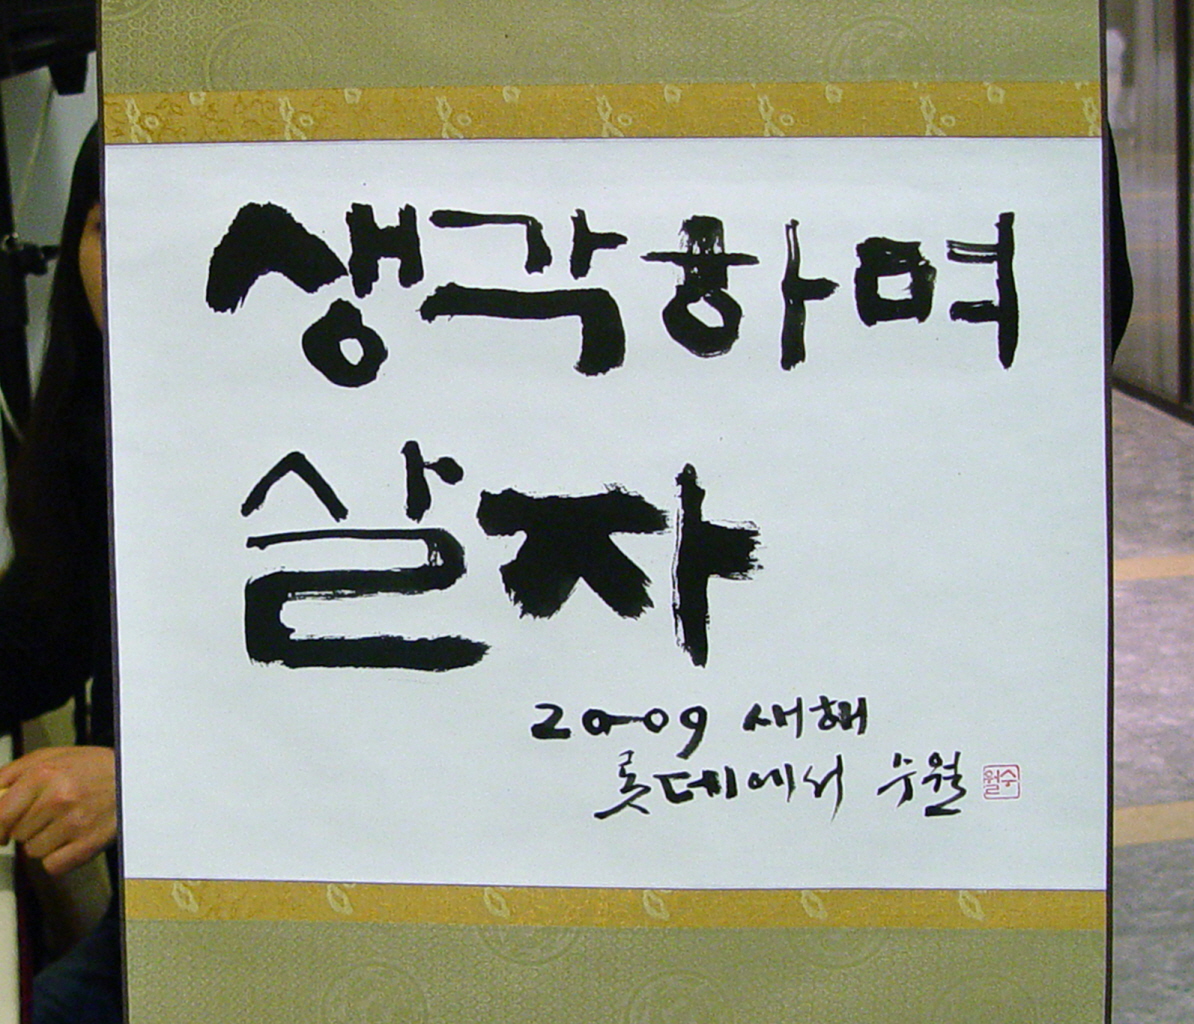 생각하며
살자
2009 새해
롯데에서 수월
수월